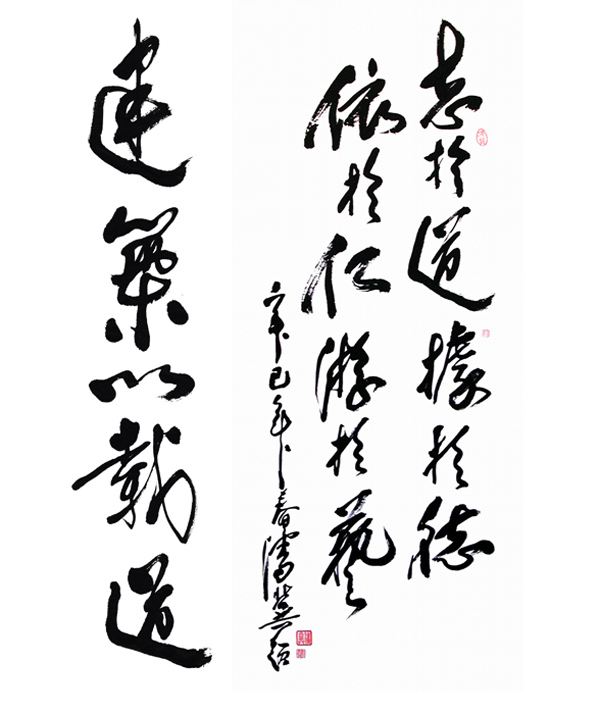 志於道據於德
依於仁游於藝
辛巳年春潘
建築以載道